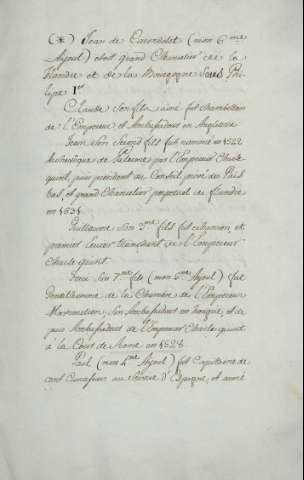 (*) Jean de Carondelet (mon 6.me
Ayeul) etoit grand Chancelier de la
Flandre et de la Bourgogne sous Phi-
lippe 1.er
Claude son fils ainé fut chambellan
de l'Empereur, et Ambassadeur en Angleterre
Jean son second fils fut nommé en 1522
Archeveque de Palerme par l'Empereur Charle
quint, puis president du Conseil privé des Pais
bas, et grand Chancelier perpetuel de flandre
en 1531
Guillaume son 3.me fils fut
premier Ecuier tranchant de l'Empereur
Charle quint
son 7.me fils (mon 5.me Ayeul) fut
Gentilhomme de la Chambre de l'Empereur
Maximilien, son Ambassadeur en et de
puis Ambassadeur de l'Empereur Charle quint
à la Cour de Rome en 1528
Paul (mon 4.me Ayeul) fut Capitaine de
cent Cuirassiers au Service d'Espagne, et armé